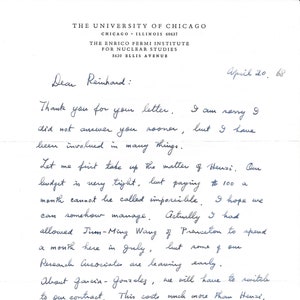 THE UNIVERSITY OF CHICAGO
CHICAGO · ILLINOIS 60637
THE ENRICO FERMI INSTITUTE
FOR NUCLEAR STUDIES
5630 ELLIS AVENUE
April 20, 68
Dear Reinhard:
Thank you for your letter. I am sorry I
did not answer you sooner, but I have
been involved in many things.
Let me first take up the matter of Henri. Our
budget is very tight, but paying $100 a
month cannot be called impossible. I hope we
can somehow manage. Actually I had
allowed Wang of Princeton to spend
a month here in July, but some of our
Research Associates are leaving early.
About Garcia- we will have to
to our contract. This costs much more than Henri.